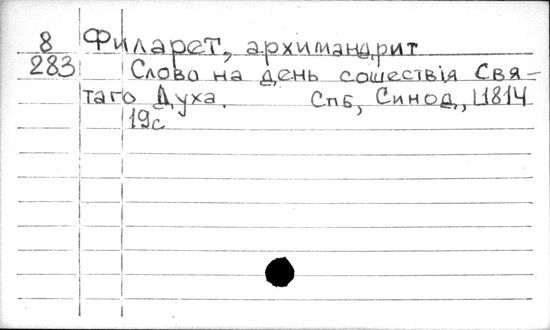 8 Филарет, архимандрит
283 Слово на день сошествія Свя-
таго Духа. Спб, Синод, Ц1814
19с